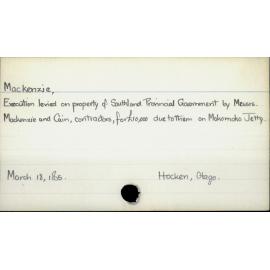 Mackenzie,
Execution levied on property of Southland Provincial Government by Messrs.
Mackenzie and Cain, contractors, for £10,000 due to them on Mokomoko Jetty.
March 18, 1865.
Hocken, Otago.